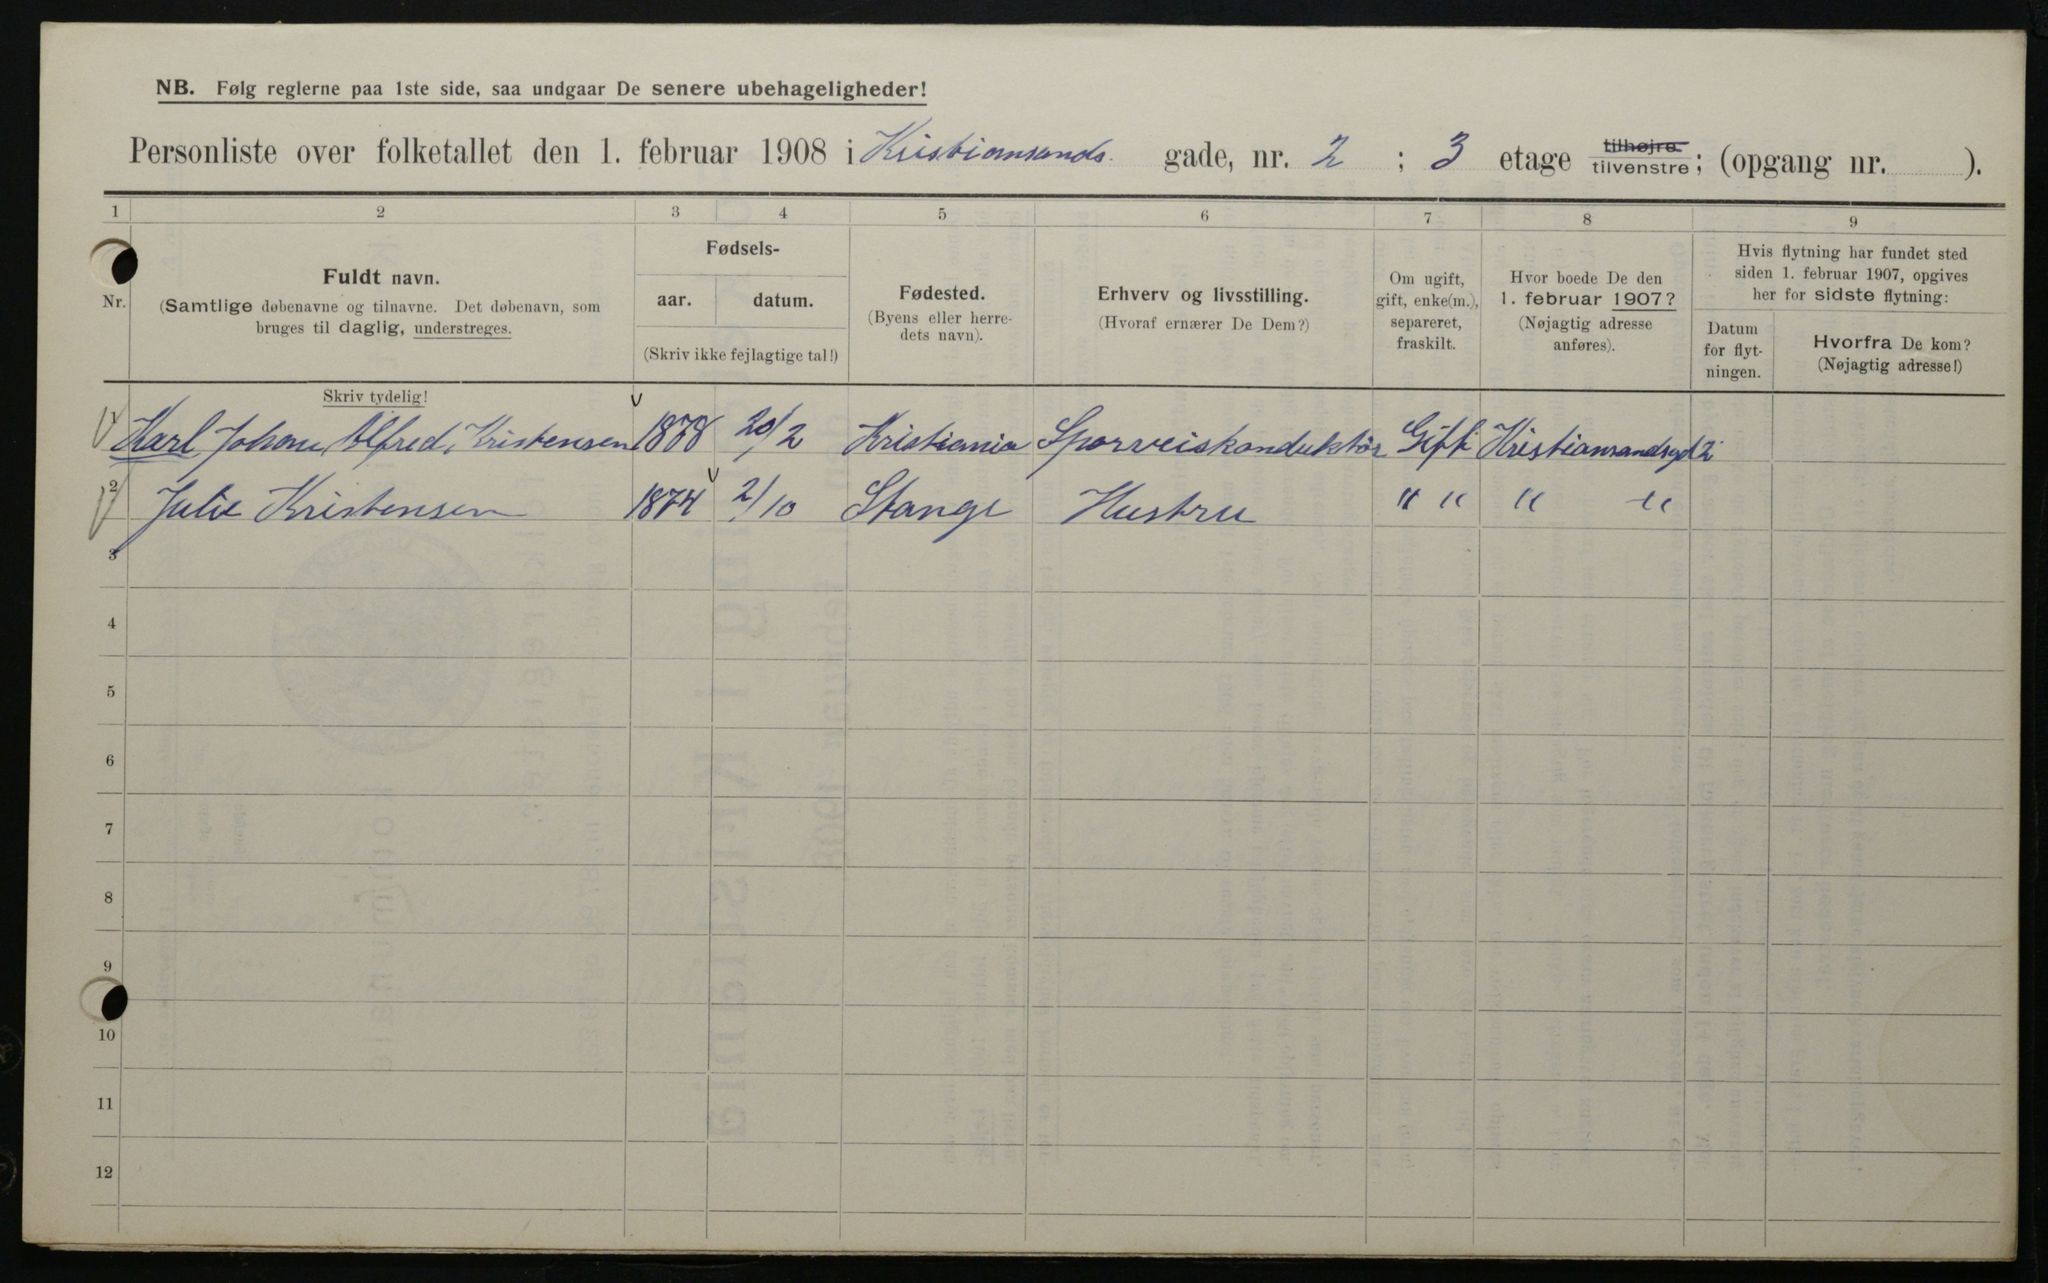 NB. Følg reglerne paa 1ste side, saa undgaar De senere ubehageligheder!
Personliste over folketallet den 1. februar 1908 i Kristiansands gade, nr. 2 ; 3 etage tilhøjre tilvenstre; (opgang nr. ).
1 2 3 4 5 6 7 8 9
Nr.
Fuldt navn.
(Samtlige døbenavne og tilnavne. Det døbenavn, som
bruges til daglig, understreges.
Fødsels-
aar. datum.
(Skriv ikke fejlagtige tal!)
Fødested.
(Byens eller herre-
dets navn).
Erhverv og livsstilling.
(Hvoraf ernærer De Dem?)
Om ugift,
gift, enke(m.),
separeret,
fraskilt.
Hvor boede De den
1. februar 1907?
(Nøjagtig adresse
anføres).
Hvis flytning har fundet sted
siden 1. februar 1907, opgives
her for sidste flytning:
Datum
for flyt-
ningen.
Hvorfra De kom?
(Nøjagtig adresse!)
Skriv tydelig!
1 Karl Johan Alfred Kristensen 1878 20/2 Kristiania Sporveiskonduktør Gift Kristiansandsgd 2
2 Julie Kristensen 1874 2/10 Stange Hustru " " " "
3
4
5
6
7
8
9
10
11
12